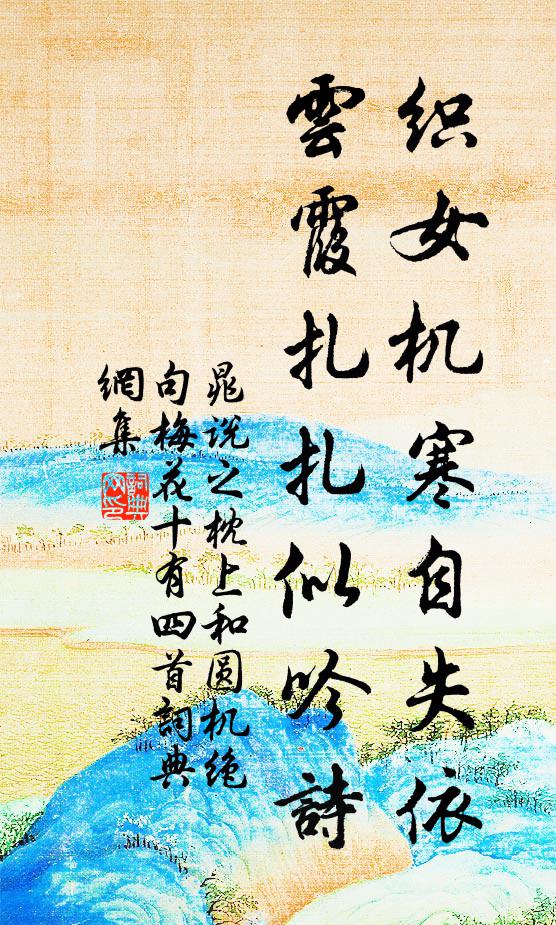 织女机寒自失依
雲霞扎扎似吟詩
晁说之枕上和圆机绝
句梅花十有四首詞典
網集